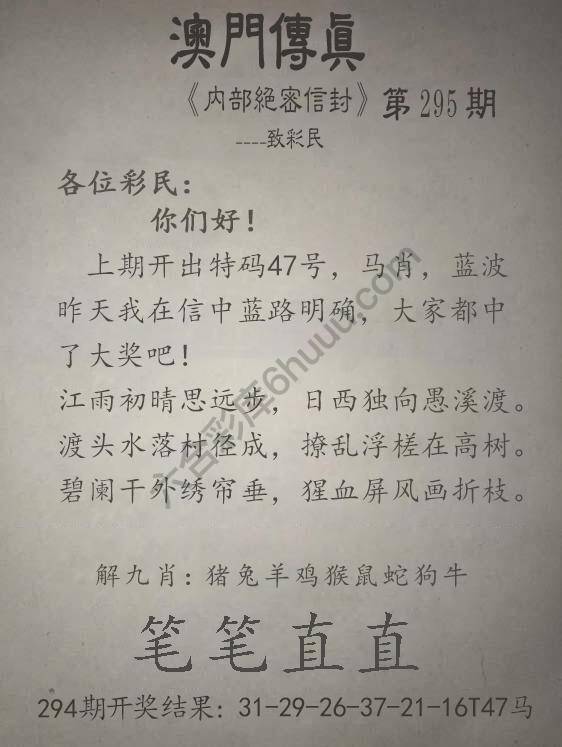 澳門傳真
《内部絕密信封》第295期
----致彩民
各位彩民：
你们好！
上期开出特码47号，马肖，蓝波
昨天我在信中蓝路明确，大家都中
了大奖吧！
江雨初晴思远步，日西独向愚溪渡。
渡头水落村径成，撩乱浮槎在高树。
碧阑干外绣帘垂，猩血屏风画折枝。
解九肖：猪兔羊鸡猴鼠蛇狗牛
笔笔直直
294期开奖结果：31-29-26-37-21-16T47马
六合彩库6huuu.com